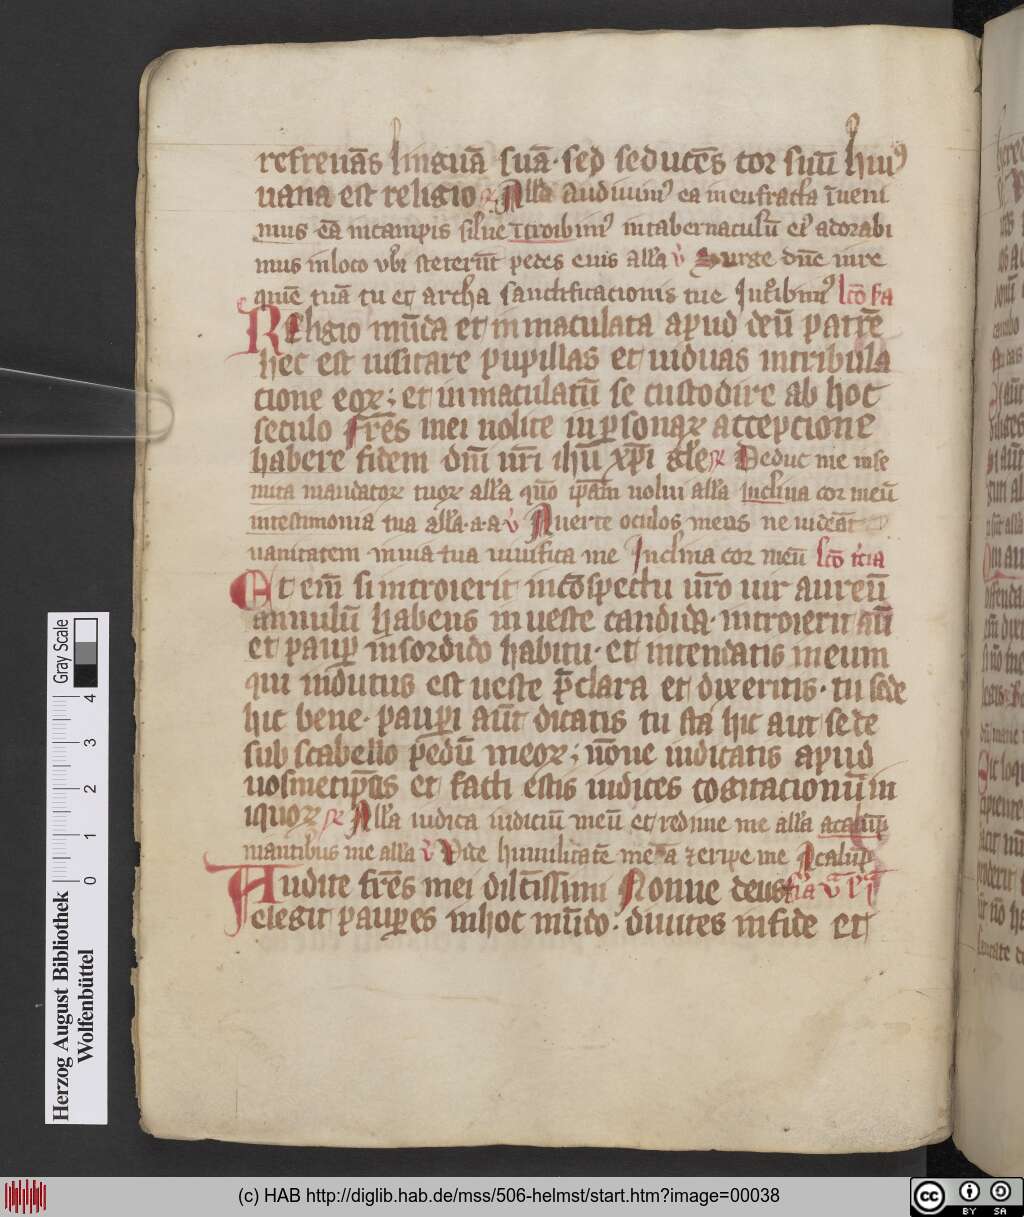 refrenās linguā suā · sed seducēs cor suū huiꝰ
uana est religio ℟ Alla Audiuimꝰ ea in eufrata īueni
mus eā in campis silue ītroibimꝰ in tabernaculū eiꝰ adorabi
mus in loco vbi steterūt pedes eius alla v̇ Surge dn̄e in re
quiē tuā tu et archa sanctificacionis tue Introibimꝰ lcō scda
Religio mūda et inmaculata apud deū patrē
hec est uisitare pupillas et uiduas in tribula
cione eoꝝ ; et inmaculatū se custodire ab hoc
seculo Frēs mei nolite in ꝑsonaꝝ acceptione
habere fidem dn̄i nr̄i ihū xp̄i glē ℟ Deduc me in se
mita mandatoꝝ tuoꝝ alla qn̄o ip̄am uolui alla Inclina cor meū
in testimonia tua alla · a · a v̇ Auerte oculos meos ne uideāt
uanitatem in uia tua uiuifica me Inclina cor meū lcō tcia
Et em̄ si introierit in cōspectu ur̄o uir aureū
annulū habens in ueste candida · introierit aūt
et pauꝑ in sordido habitu · et intendatis in eum
qui indutus est ueste p̄clara et dixeritis · tu sede
hic bene · pauꝑi aūt dicatis tu sta hic aut sede
sub scabello pedū meoꝝ ; nōne iudicatis apud
uosmetip̄os et facti estis iudices cogitacionū in
iquoꝝ ℟ Alla iudica iudiciū meū et redime me alla a calūp
niantibus me alla v̇ Vide humilitatē meā ⁊ eripe me A calūp
Audite frēs mei dilctissimi Nonne deus fīa VI
elegit pauꝑes in hoc mūdo · diuites in fide et
Herzog August Bibliothek
Wolfenbüttel
Gray Scale
0 1 2 3 4
(c) HAB http://diglib.hab.de/mss/506-helmst/start.htm?image=00038
cc BY SA